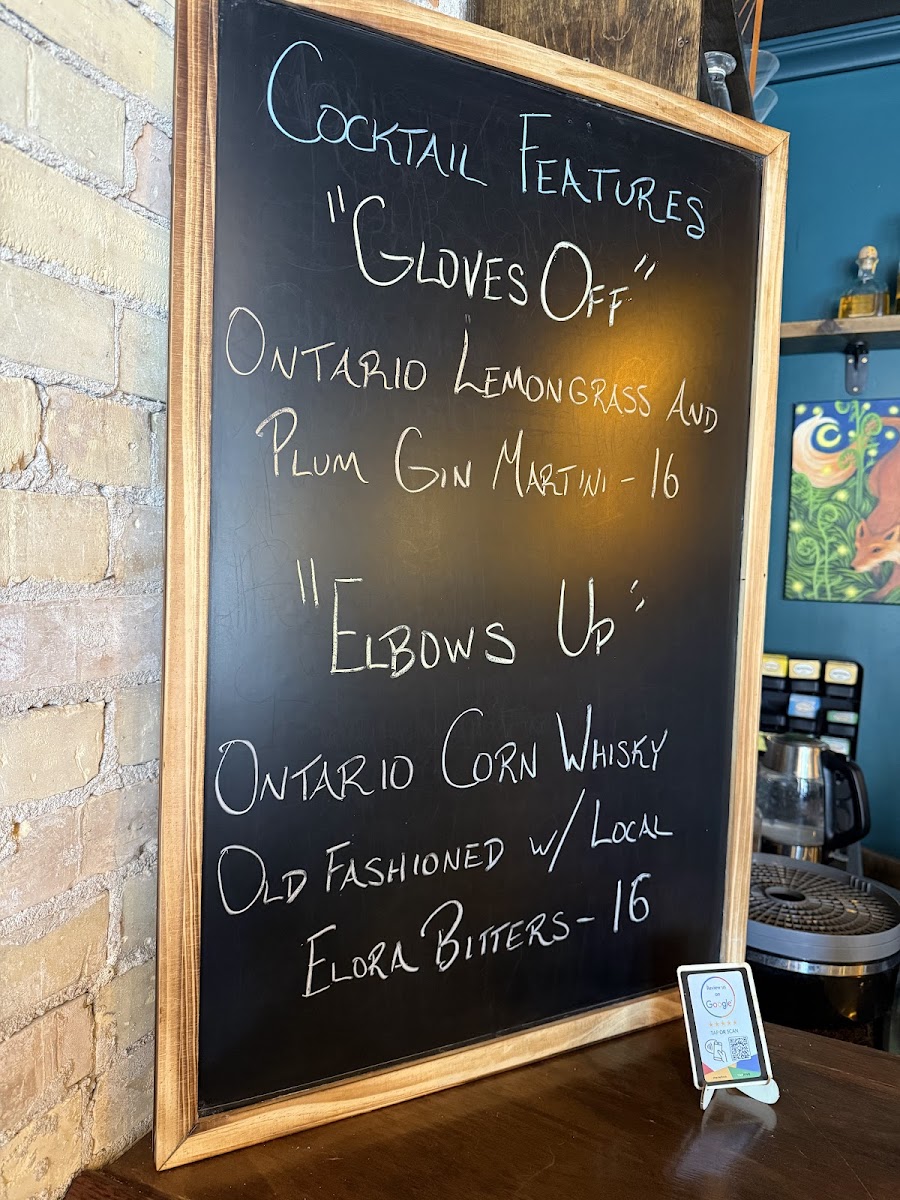 Cocktail Features
"Gloves Off"
Ontario Lemongrass And
Plum Gin Martini - 16
"Elbows Up"
Ontario Corn Whisky
Old Fashioned w/ Local
Elora Bitters - 16
Review us
on
Google
TAP OR SCAN